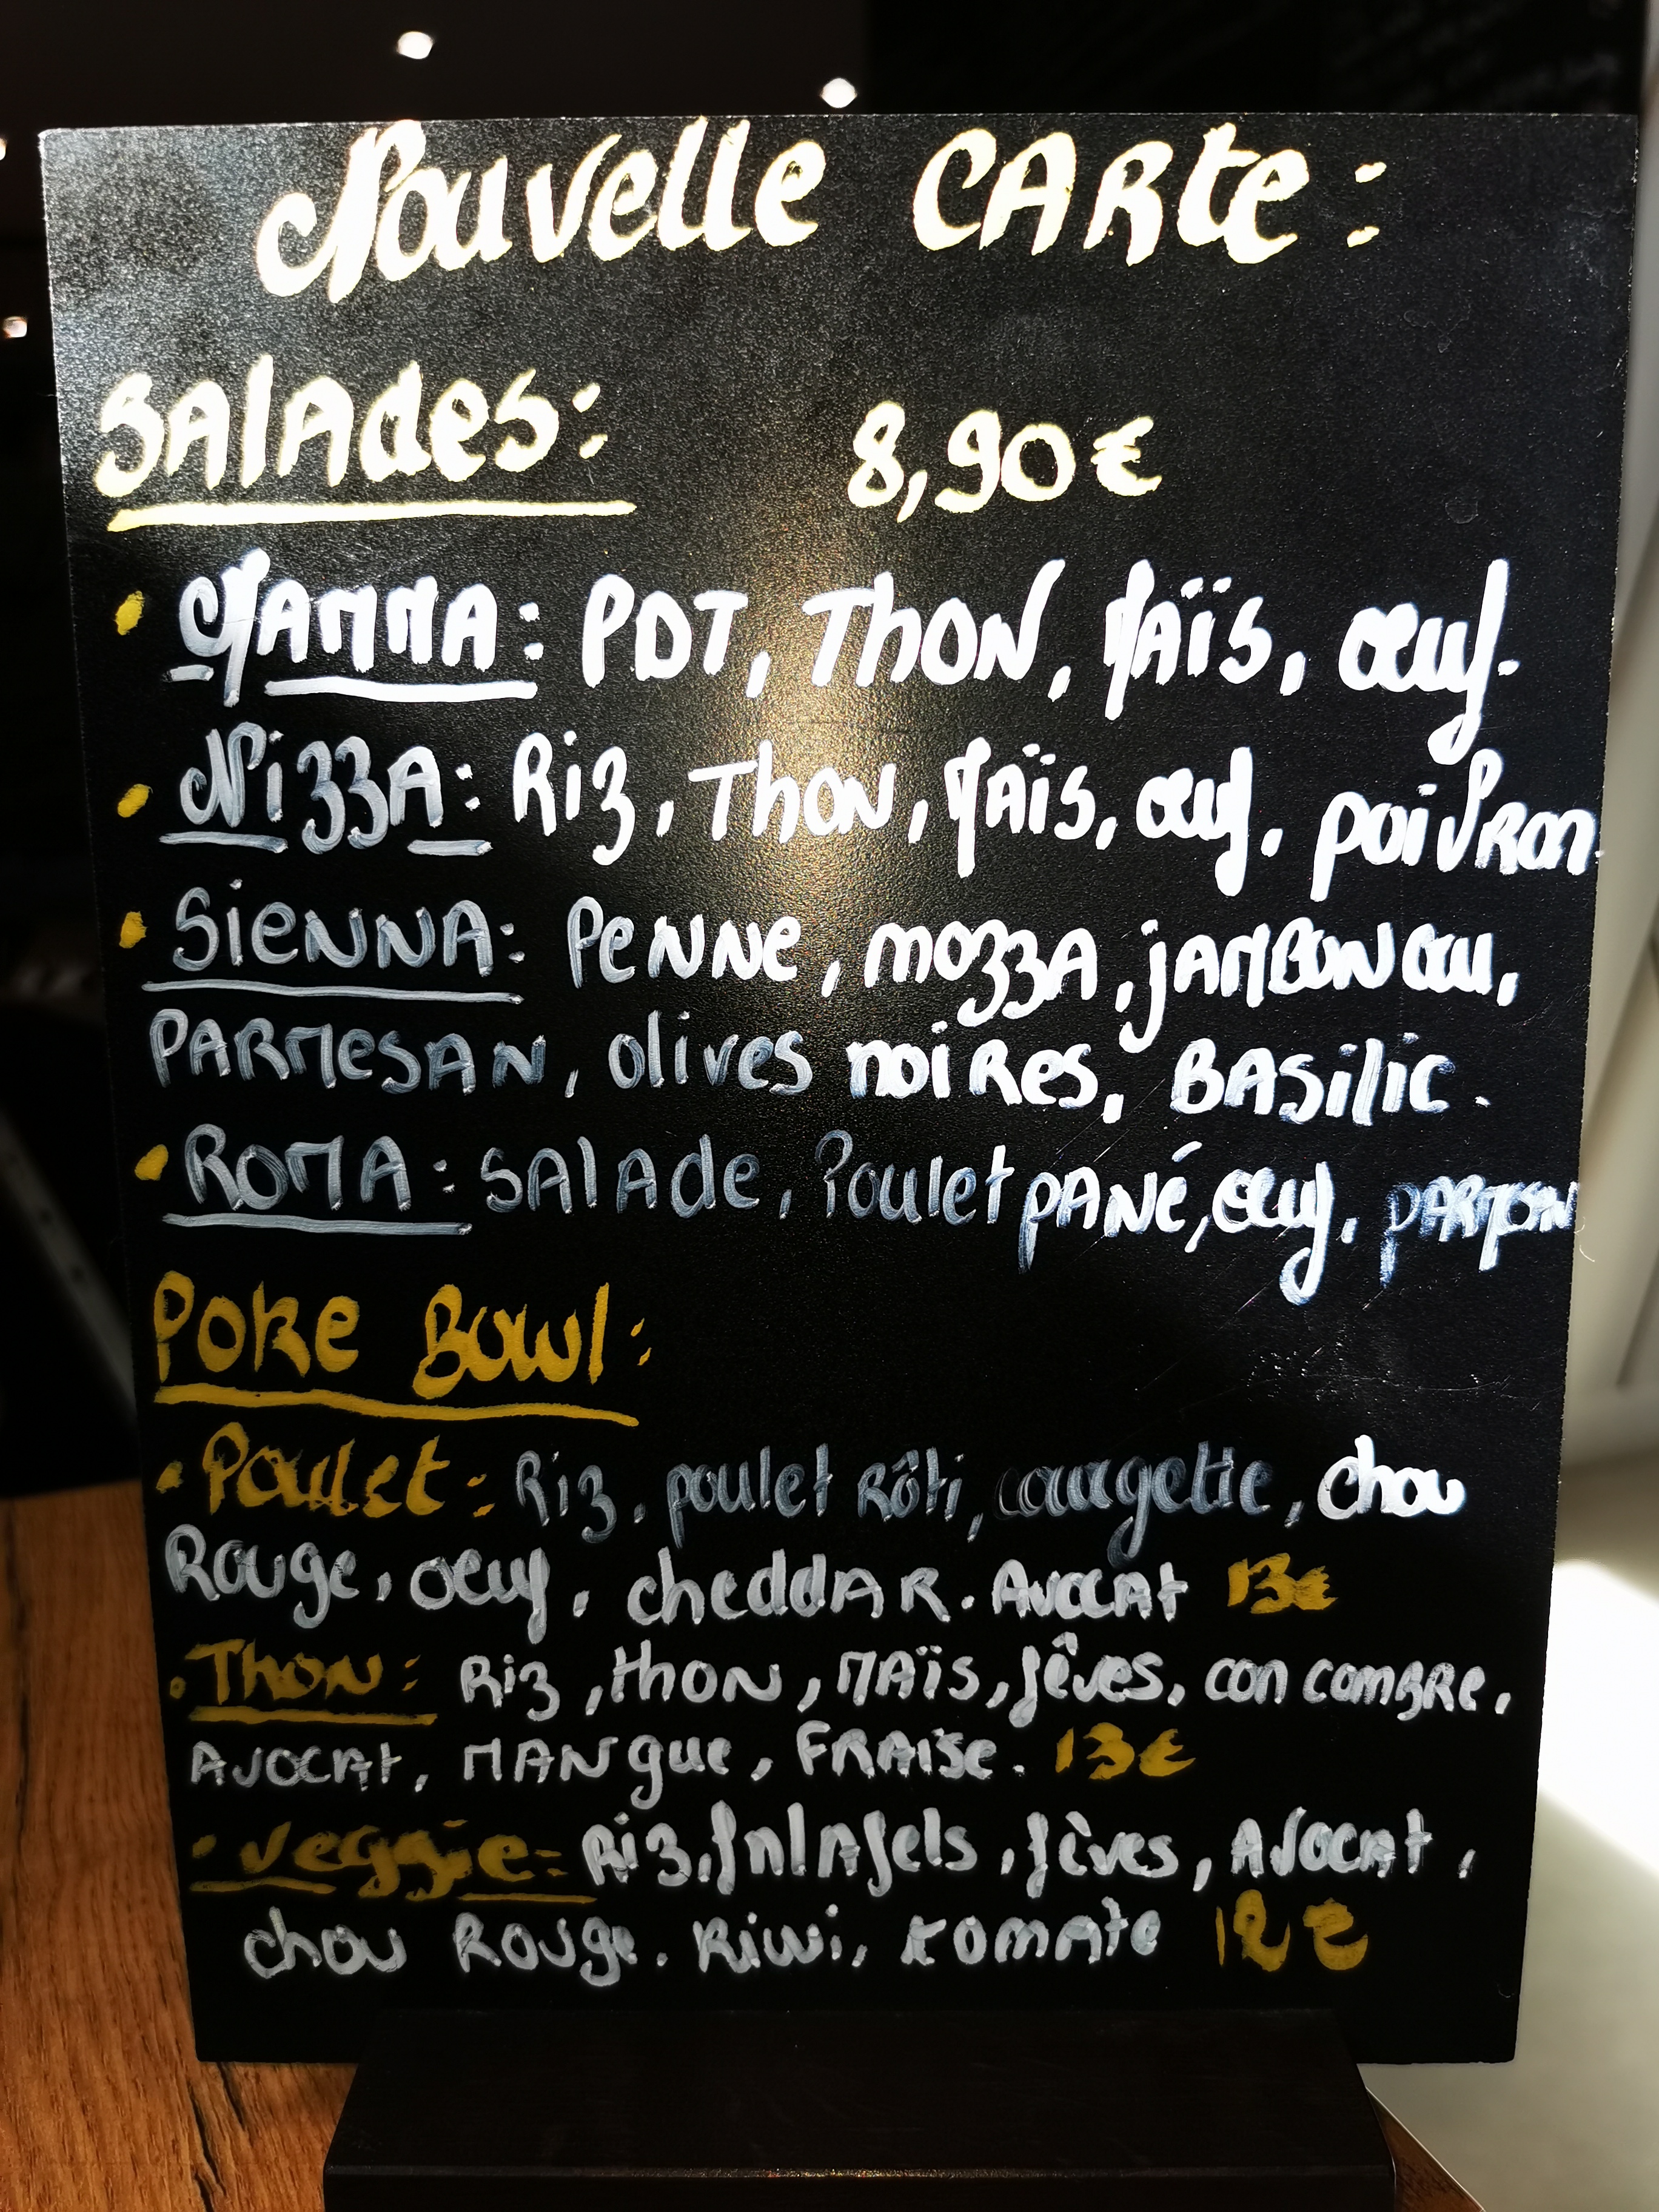 Nouvelle CARte :
SAlAdes : 8,90 €
• MAMMA : PDT, ThON, MAïS, œuf.
• Nizza : Riz, ThON, MAïs, œuf, poivRon.
• SieNNA : PeNNe, mozzA, jAMBONNeau,
PARMeSAN, olives noiRes, BASilic.
• ROMA : SAlAde, Poulet pANé, œuf, pARMesAN
Poke Bowl :
• Poulet : Riz, poulet Rôti, courgette, chou
Rouge, oeuf, cheddAR. AvocAt 13€
• Thon : Riz, thoN, MAïs, fêves, concomBRe,
AvocAt, MANgue, FRAise. 13€
• veggie : Riz, fAlAfels, fèves, AvocAt,
chou Rouge. Kiwi, tomAte 12€